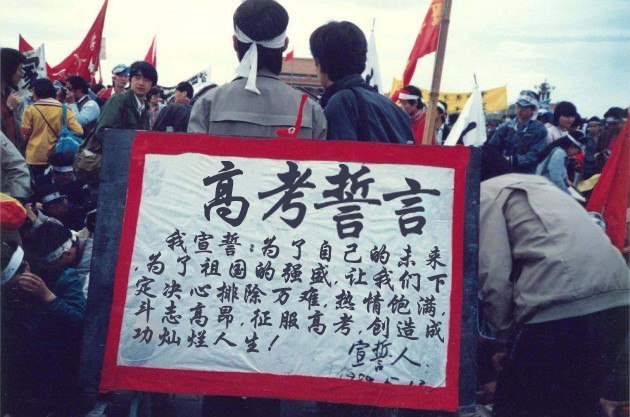 高考誓言
我宣誓:为了自己的未来
,为了祖国的强盛,让我们下
定决心排除万难,热情饱满,
斗志高昂,征服高考,创造成
功灿烂人生!
宣誓人: